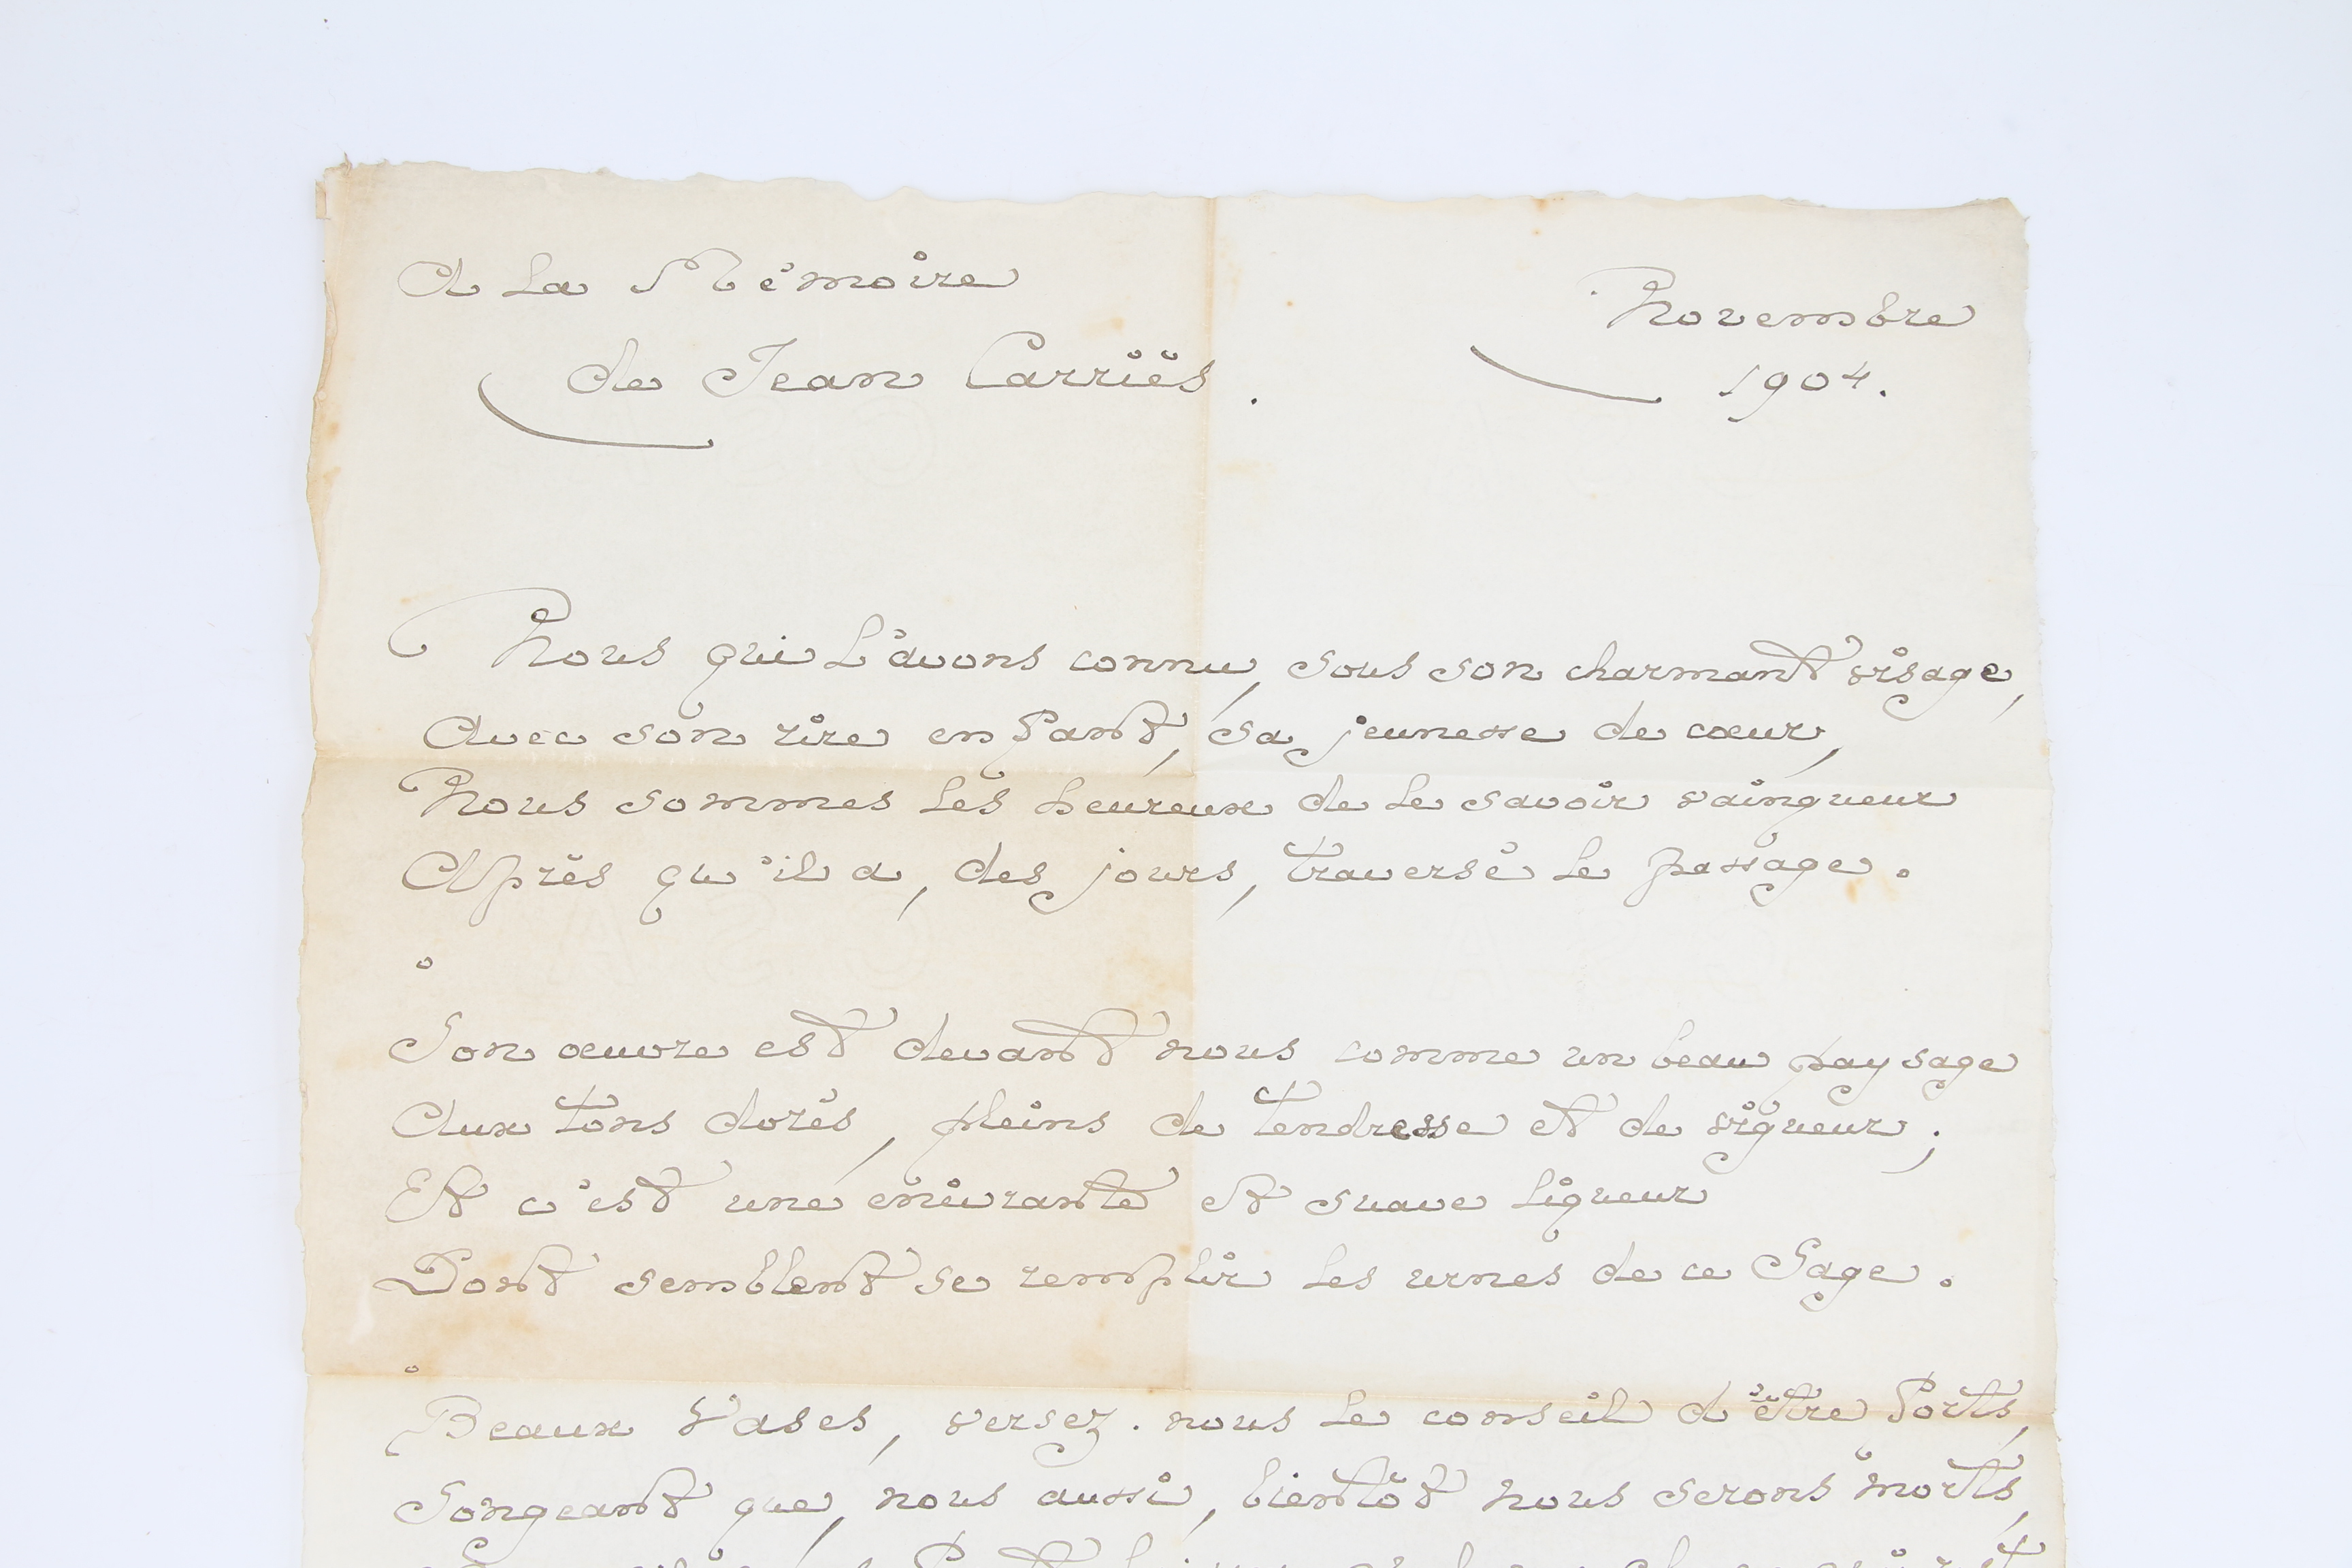 A la Mémoire
de Jean Carriès.
Novembre
1904.
Nous qui l'avons connu, sous son charmant visage,
Avec son rire enfant, sa jeunesse de cœur,
Nous sommes les heureux de le savoir vainqueur
Après qu'il a, des jours, traversé le passage.
Son œuvre est devant nous comme un beau paysage
Aux tons dorés, pleins de tendresse et de vigueur;
Et c'est une enivrante et suave liqueur
Dont semblent se remplir les urnes de ce Sage.
Beaux Vases, versez-nous le conseil d'être forts,
Songeant que, nous aussi, bientôt nous serons morts,